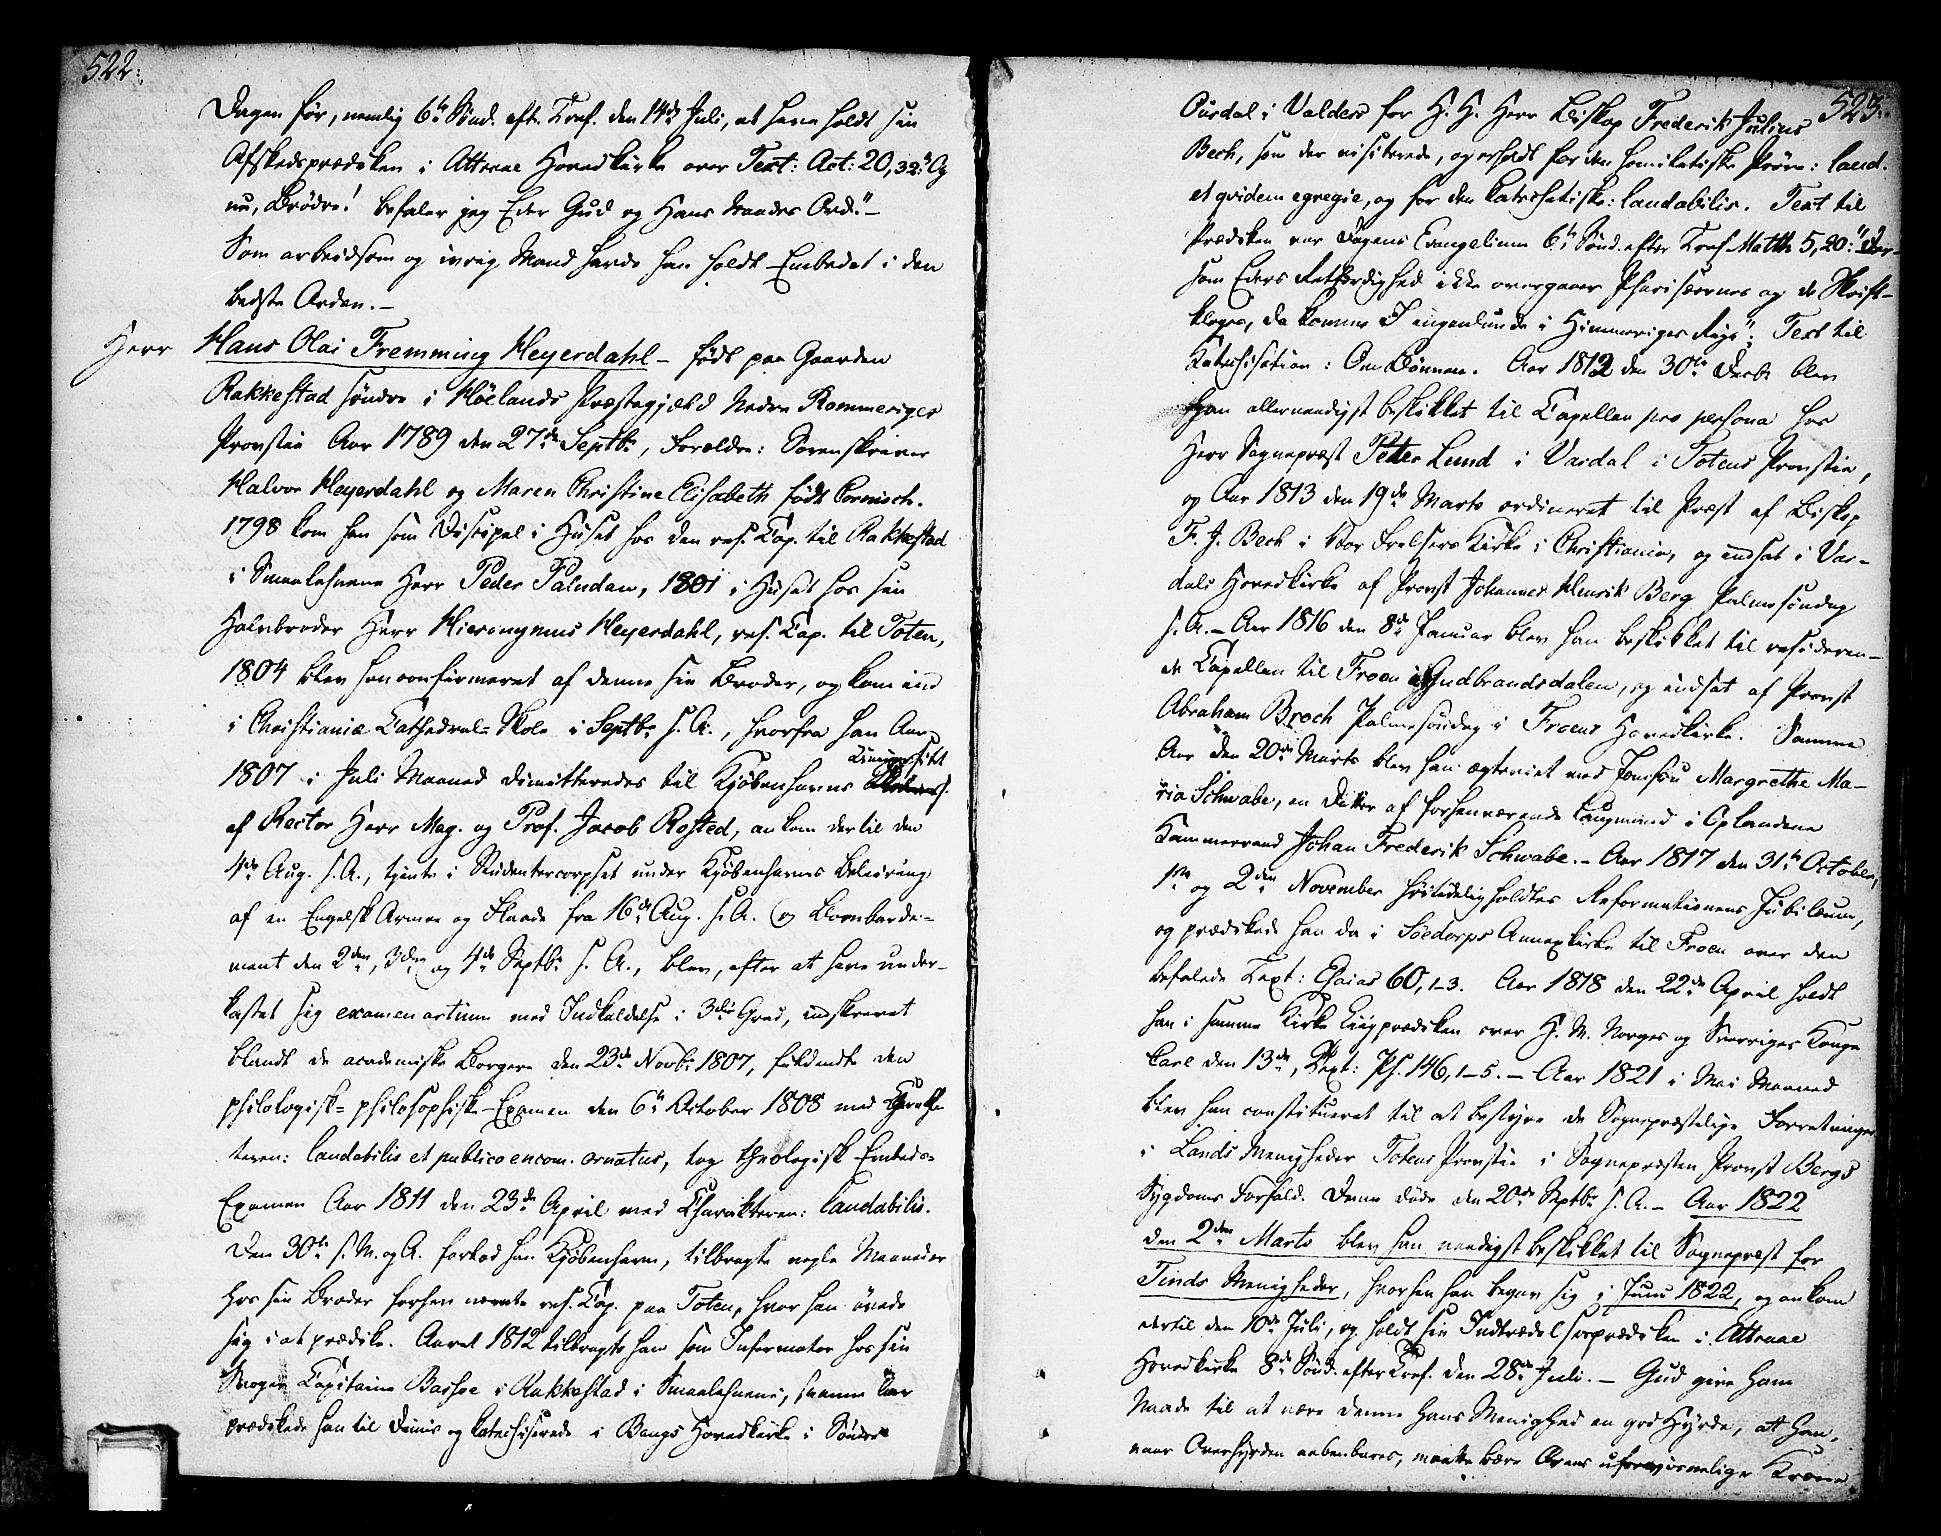 522.
Dagen før, nemlig 6te Sønd. eft. Tref. den 14de Juli, at have holdt sin
Afskedsprædiken i Attraae Hovedkirke over Text: Act: 20,32: "Og
nu, Brødre! befaler jeg Eder Gud og Hans Naades Ord."-
Som arbeidsom og ivrig Mand havde han holdt Embedet i den
bedste Orden.-
Herr Hans Olai Fremming Heyerdahl - født paa Gaarden
Rakkestad søndre i Høelands Præstegjæld Nedre Rommeriges
Provstie Aar 1789 den 27de Septbr, Forældre: Sorenskriver
Halvor Heyerdahl og Maren Christine Elisabeth født Cornisch.
1798 kom han som Discipel i Huset hos den res. Cap. til Rakkestad
i Smaalehnene Herr Peder Paludan, 1801 i Huset hos sin
Halvbroder Herr Hieronymus Heyerdahl, res. Cap. til Toten,
1804 blev han confirmeret af denne sin Broder, og kom ind
i Christiania Cathedral-Skole i Septbr s. A., hvorfra han Aar
1807 i Juli Maaned dimitteredes til Kjøbenhavns Universitet
af Rector Herr Mag. og Prof. Jacob Rosted, ankom dertil den
4de Aug. s. A., tjente i Studentercorpset under Kjøbenhavns Beleiring
af en Engelsk Armee og Flaade fra 16de Aug. s. A. og Bombarde-
ment den 2den, 3die og 4de Septbr s. A., blev, efter at have under-
kastet sig examen artium med Indkaldelse i 3die Grad, indskrevet
blandt de academiske Borgere den 23de Novbr 1807, fuldendte den
philologisk-philosophisk-Examen den 6te October 1808 med Charak-
teren: laudabilis et publico encom. ornatus, tog theologisk Embeds-
Examen Aar 1811 den 23de April med Charakteren: laudabilis.
Den 30te s. M. og A. forlod han Kjøbenhavn, tilbragte nogle Maaneder
hos sin Broder forhen nævnte res. Cap. paa Toten, hvor han øvede
sig i at prædike. Aaret 1812 tilbragte han som Informator hos sin
Svoger Capitaine Bashoe i Rakkestad i Smaalehnene, samme Aar
prædikede han til Dimis og katechiserede i Bangs Hovedkirke i Søndre
523.
Ourdal i Valders for H. H. Herr Biskop Frederik Julius
Bech, som der visiterede, og erholdt for den homiletiske Prøve: laud.
et qvidem egregie, og for den katechetiske: laudabilis. Text til
Prædiken var Dagens Evangelium 6te Sønd. efter Tref Matth 5,20: "Der-
som Eders Retfærdighed ikke overgaaer Pharisæernes og de Skrift-
kloges, da komme I ingenlunde i Himmeriges Rige"; Text til
Katechisation: Om Bønnen. Aar 1812 den 30te Decbr blev
Han allernaadigst beskikket til Capellan pro persona hos
Herr Sognepræst Peter Lund i Vardal i Totens Provstie,
og Aar 1813 den 19de Marts ordineret til Præst af Biskop
F. J. Bech i Vor Frelsers Kirke i Christiania, og indsat i Var-
dals Hovedkirke af Provst Johannes Henrik Berg Palmesøndag
s. A. - Aar 1816 den 8de Januar blev han beskikket til resideren-
de Capellan til Froen i Gudbrandsdalen, og indsat af Provst
Abraham Broch Palmesøndag i Froens Hovedkirke. Samme
Aar den 20de Marts blev han ægteviet med Jomfru Margrethe Ma-
ria Schwabe, en Datter af forhenværende Laugmand i Oplandene
Kammerraad Johan Frederik Schwabe. - Aar 1817 den 31te October,
1ste og 2den November høitideligholdtes Reformationens Jubilæum,
og prædikede han da i Søedorps Annexkirke til Froen over den
befalede Text: Esaias 60,1-3. Aar 1818 den 22de April holdt
han i samme Kirke Liigprædiken over H. M. Norges og Sverriges Konge
Carl den 13de, Text: Ps. 146, 1-5. - Aar 1821 i Mai Maaned
blev han constitueret til at bestyre de Sognepræstelige Forretninger
i Lands Menigheder Totens Provstie i Sognepræsten Provst Bergs
Sygdoms Forfald. Denne døde den 20de Septbr s. A. - Aar 1822
den 2den Marts blev han naadigst beskikket til Sognepræst for
Tinds Menigheder, hvorhen han begav sig i Juni 1822, og ankom
dertil den 10de Juli, og holdt sin Indtrædelsesprædiken i Attraae
Hovedkirke 8de Sønd. efter Tref. den 28de Juli. - Gud give Ham
Naade til at være denne Hans Menighed en god Hyrde, at Han,
naar Overhyrden aabenbares, maatte bære Ærens uforvisnelige Krone